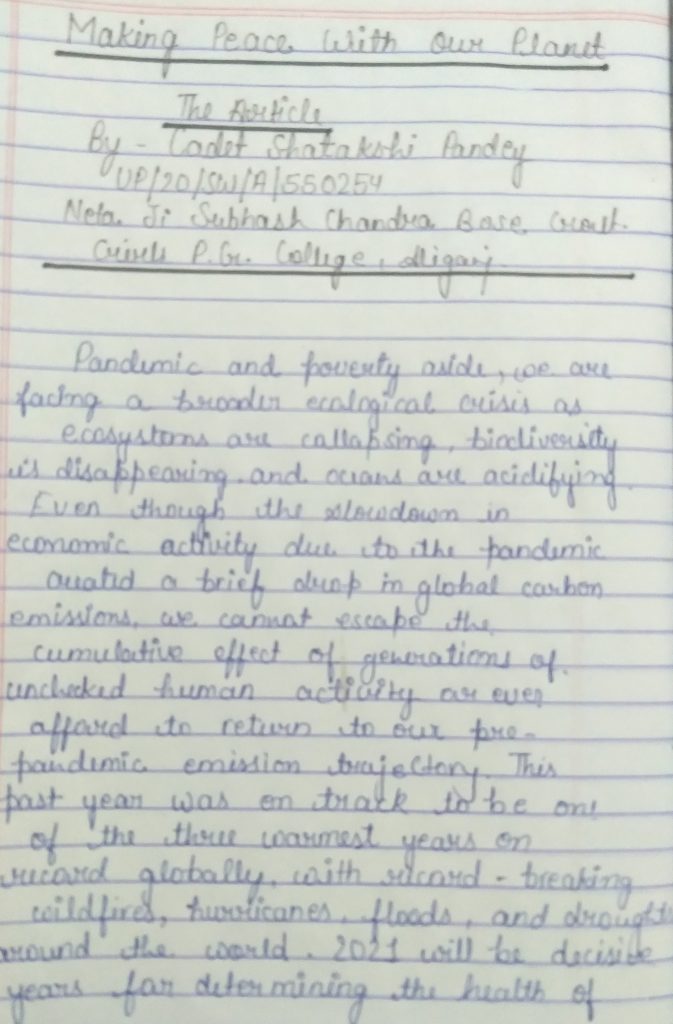 Making Peace With our Planet
The Article
By - Cadet Shatakshi Pandey
UP/20/SW/A/550254
Neta Ji Subhash Chandra Bose Govt.
Girls P.G. College, Aliganj.
Pandemic and poverty aside, we are
facing a broader ecological crisis as
ecosystems are collapsing, biodiversity
is disappearing and oceans are acidifying.
Even though the slowdown in
economic activity due to the pandemic
created a brief drop in global carbon
emissions, we cannot escape the
cumulative effect of generations of
unchecked human activity or even
afford to return to our pre-
pandemic emission trajectory. This
past year was on track to be one
of the three warmest years on
record globally, with record-breaking
wildfires, hurricanes, floods, and droughts
around the world. 2021 will be decisive
years for determining the health of